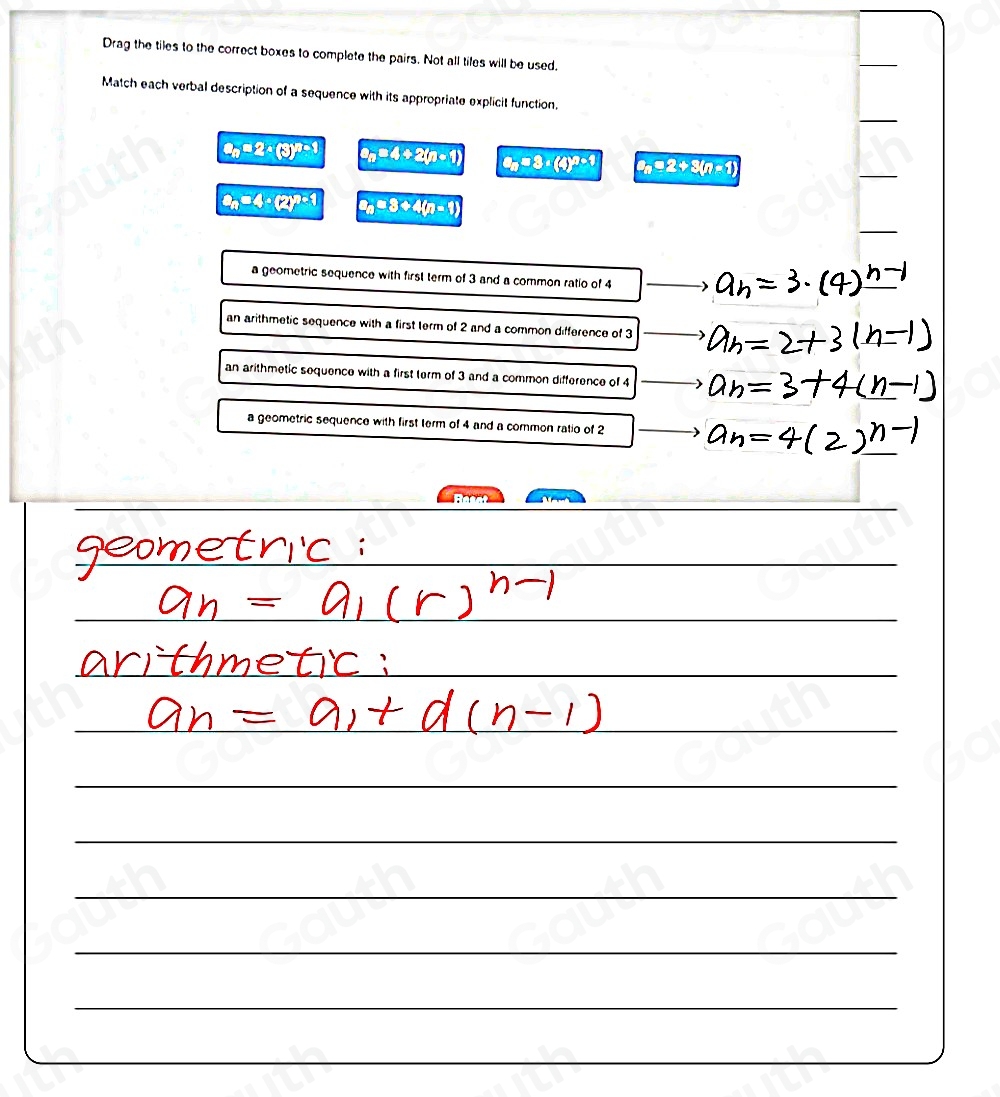 Drag the tiles to the correct boxes to complete the pairs. Not all tiles will be used.
Match each verbal description of a sequence with its appropriate explicit function.
aₙ = 2 · (3)ⁿ⁻¹ aₙ = 4 + 2(n - 1) aₙ = 3 · (4)ⁿ⁻¹ aₙ = 2 + 3(n - 1)
aₙ = 4 · (2)ⁿ⁻¹ aₙ = 3 + 4(n - 1)
a geometric sequence with first term of 3 and a common ratio of 4 → an = 3·(4)ⁿ⁻¹
an arithmetic sequence with a first term of 2 and a common difference of 3 → an = 2+3(n-1)
an arithmetic sequence with a first term of 3 and a common difference of 4 → an = 3+4(n-1)
a geometric sequence with first term of 4 and a common ratio of 2 → an = 4(2)ⁿ⁻¹
Reset Next
geometric :
an = a₁(r)ⁿ⁻¹
arithmetic :
an = a₁ + d(n-1)
Gauth